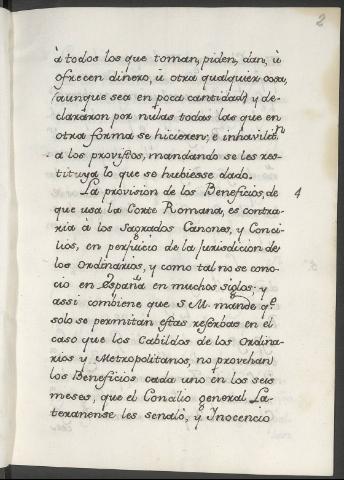 2
à todos los que toman, piden, dan, ù
ofrecen dinero, ù otra qualquier cosa,
(aunque sea en poca cantidad) y de-
clararon por nulas todas las que en
otra forma se hicieren; e inhavilitn
a los provistos, mandando se les res-
tituya lo que se hubiesse dado.
La provision de los Beneficios, de 4
que usa la Corte Romana, es contra-
ria à los Sagrados Canones, y Conci-
lios, en perjuicio de la Jurisdicion de
los ordinarios, y como tal no se cono-
cio en España en muchos siglos; y
assi combiene que S. M. mande q.e
solo se permitan estas reservas en el
caso que los Cabildos de los Ordina-
rios y Metropolitanos, no provehan
los Beneficios cada uno en los seis
meses, que el Concilio general La-
teranense les señalò, y Inocencio